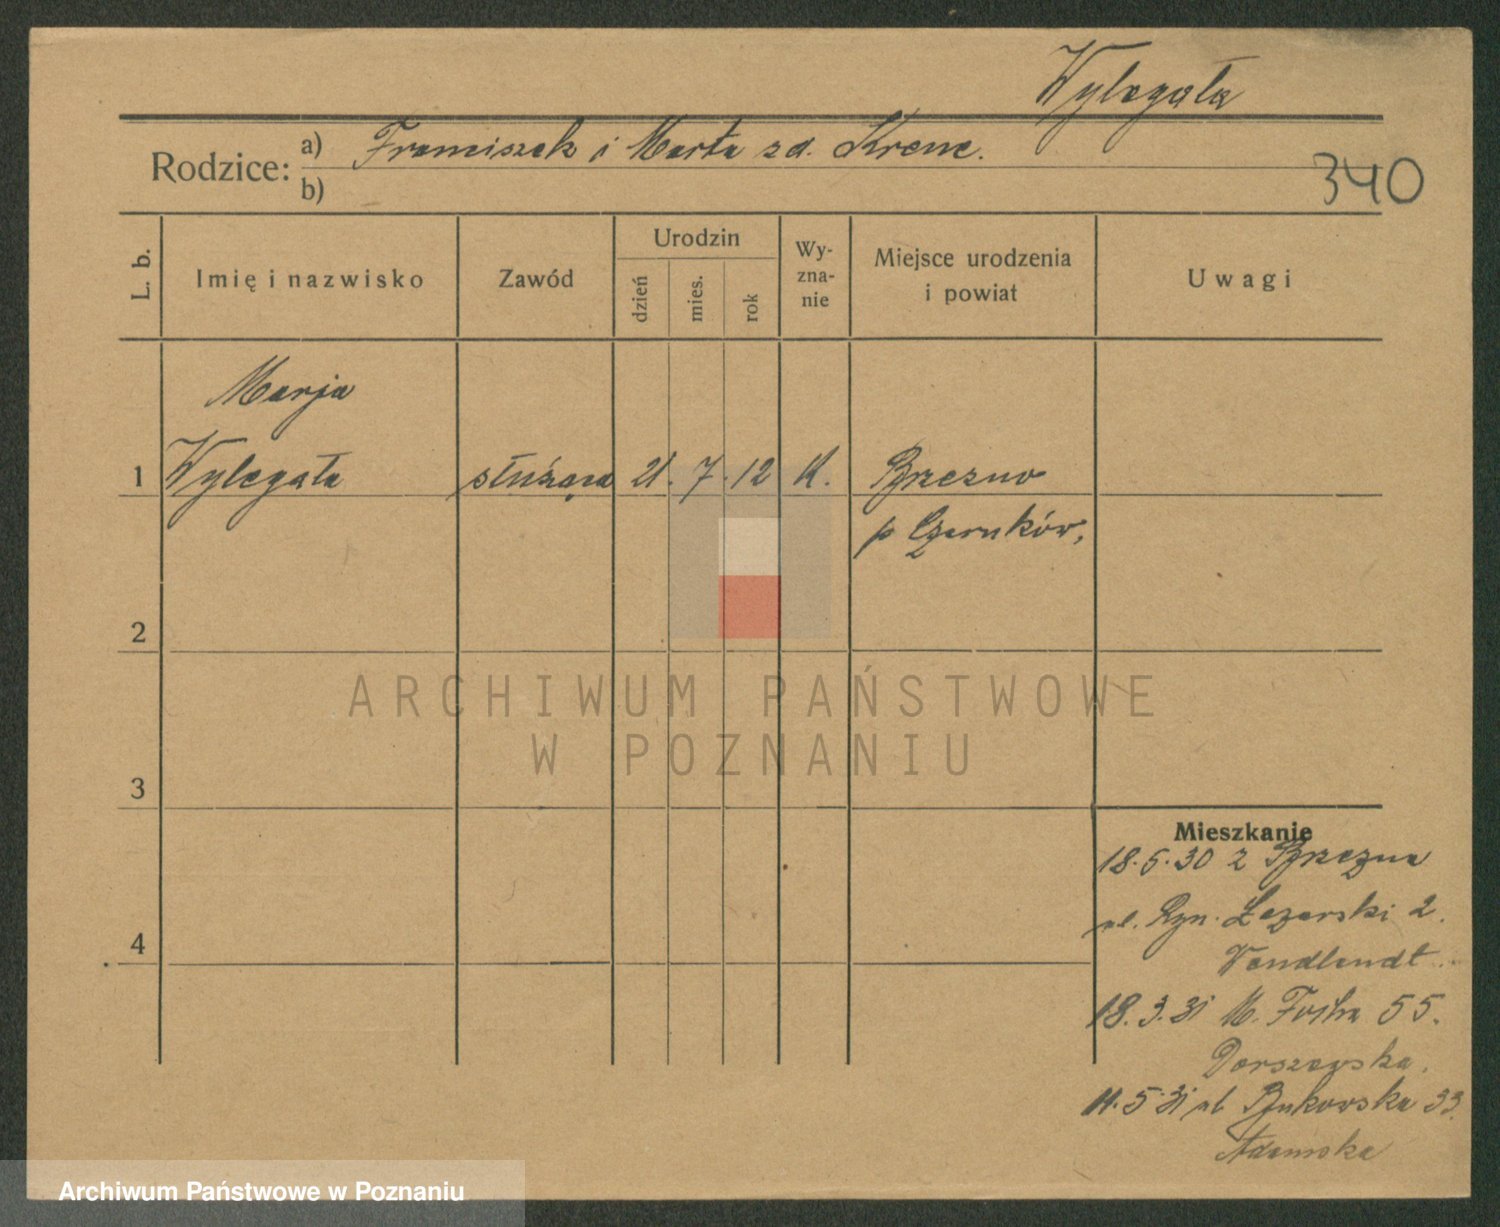 Wylegała
Rodzice: a) Franciszek i Marta zd. Krenc.
b)
340
L. b.
Imię i nazwisko
Zawód
Urodzin
dzień
mies.
rok
Wy-
zna-
nie
Miejsce urodzenia
i powiat
Uwagi
Marja
1 Wylegała służąca 21. 7. 12 K. Brzezno
p Czarnków,
2
ARCHIWUM PAŃSTWOWE
W POZNANIU
3
Mieszkanie
18.5.30 z Brzezna
ul. Ryn. Łazarski 2.
Vandlandt
4
18.3.31 M. Focha 55.
Darszewska.
11.5.31 ul Bukowska 33.
Adamska
Archiwum Państwowe w Poznaniu